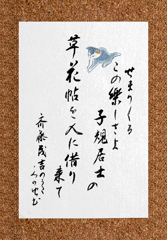 せまりくる
この楽しさよ
子規居士の
草花帖を人に借り
来て
斎藤茂吉のうた